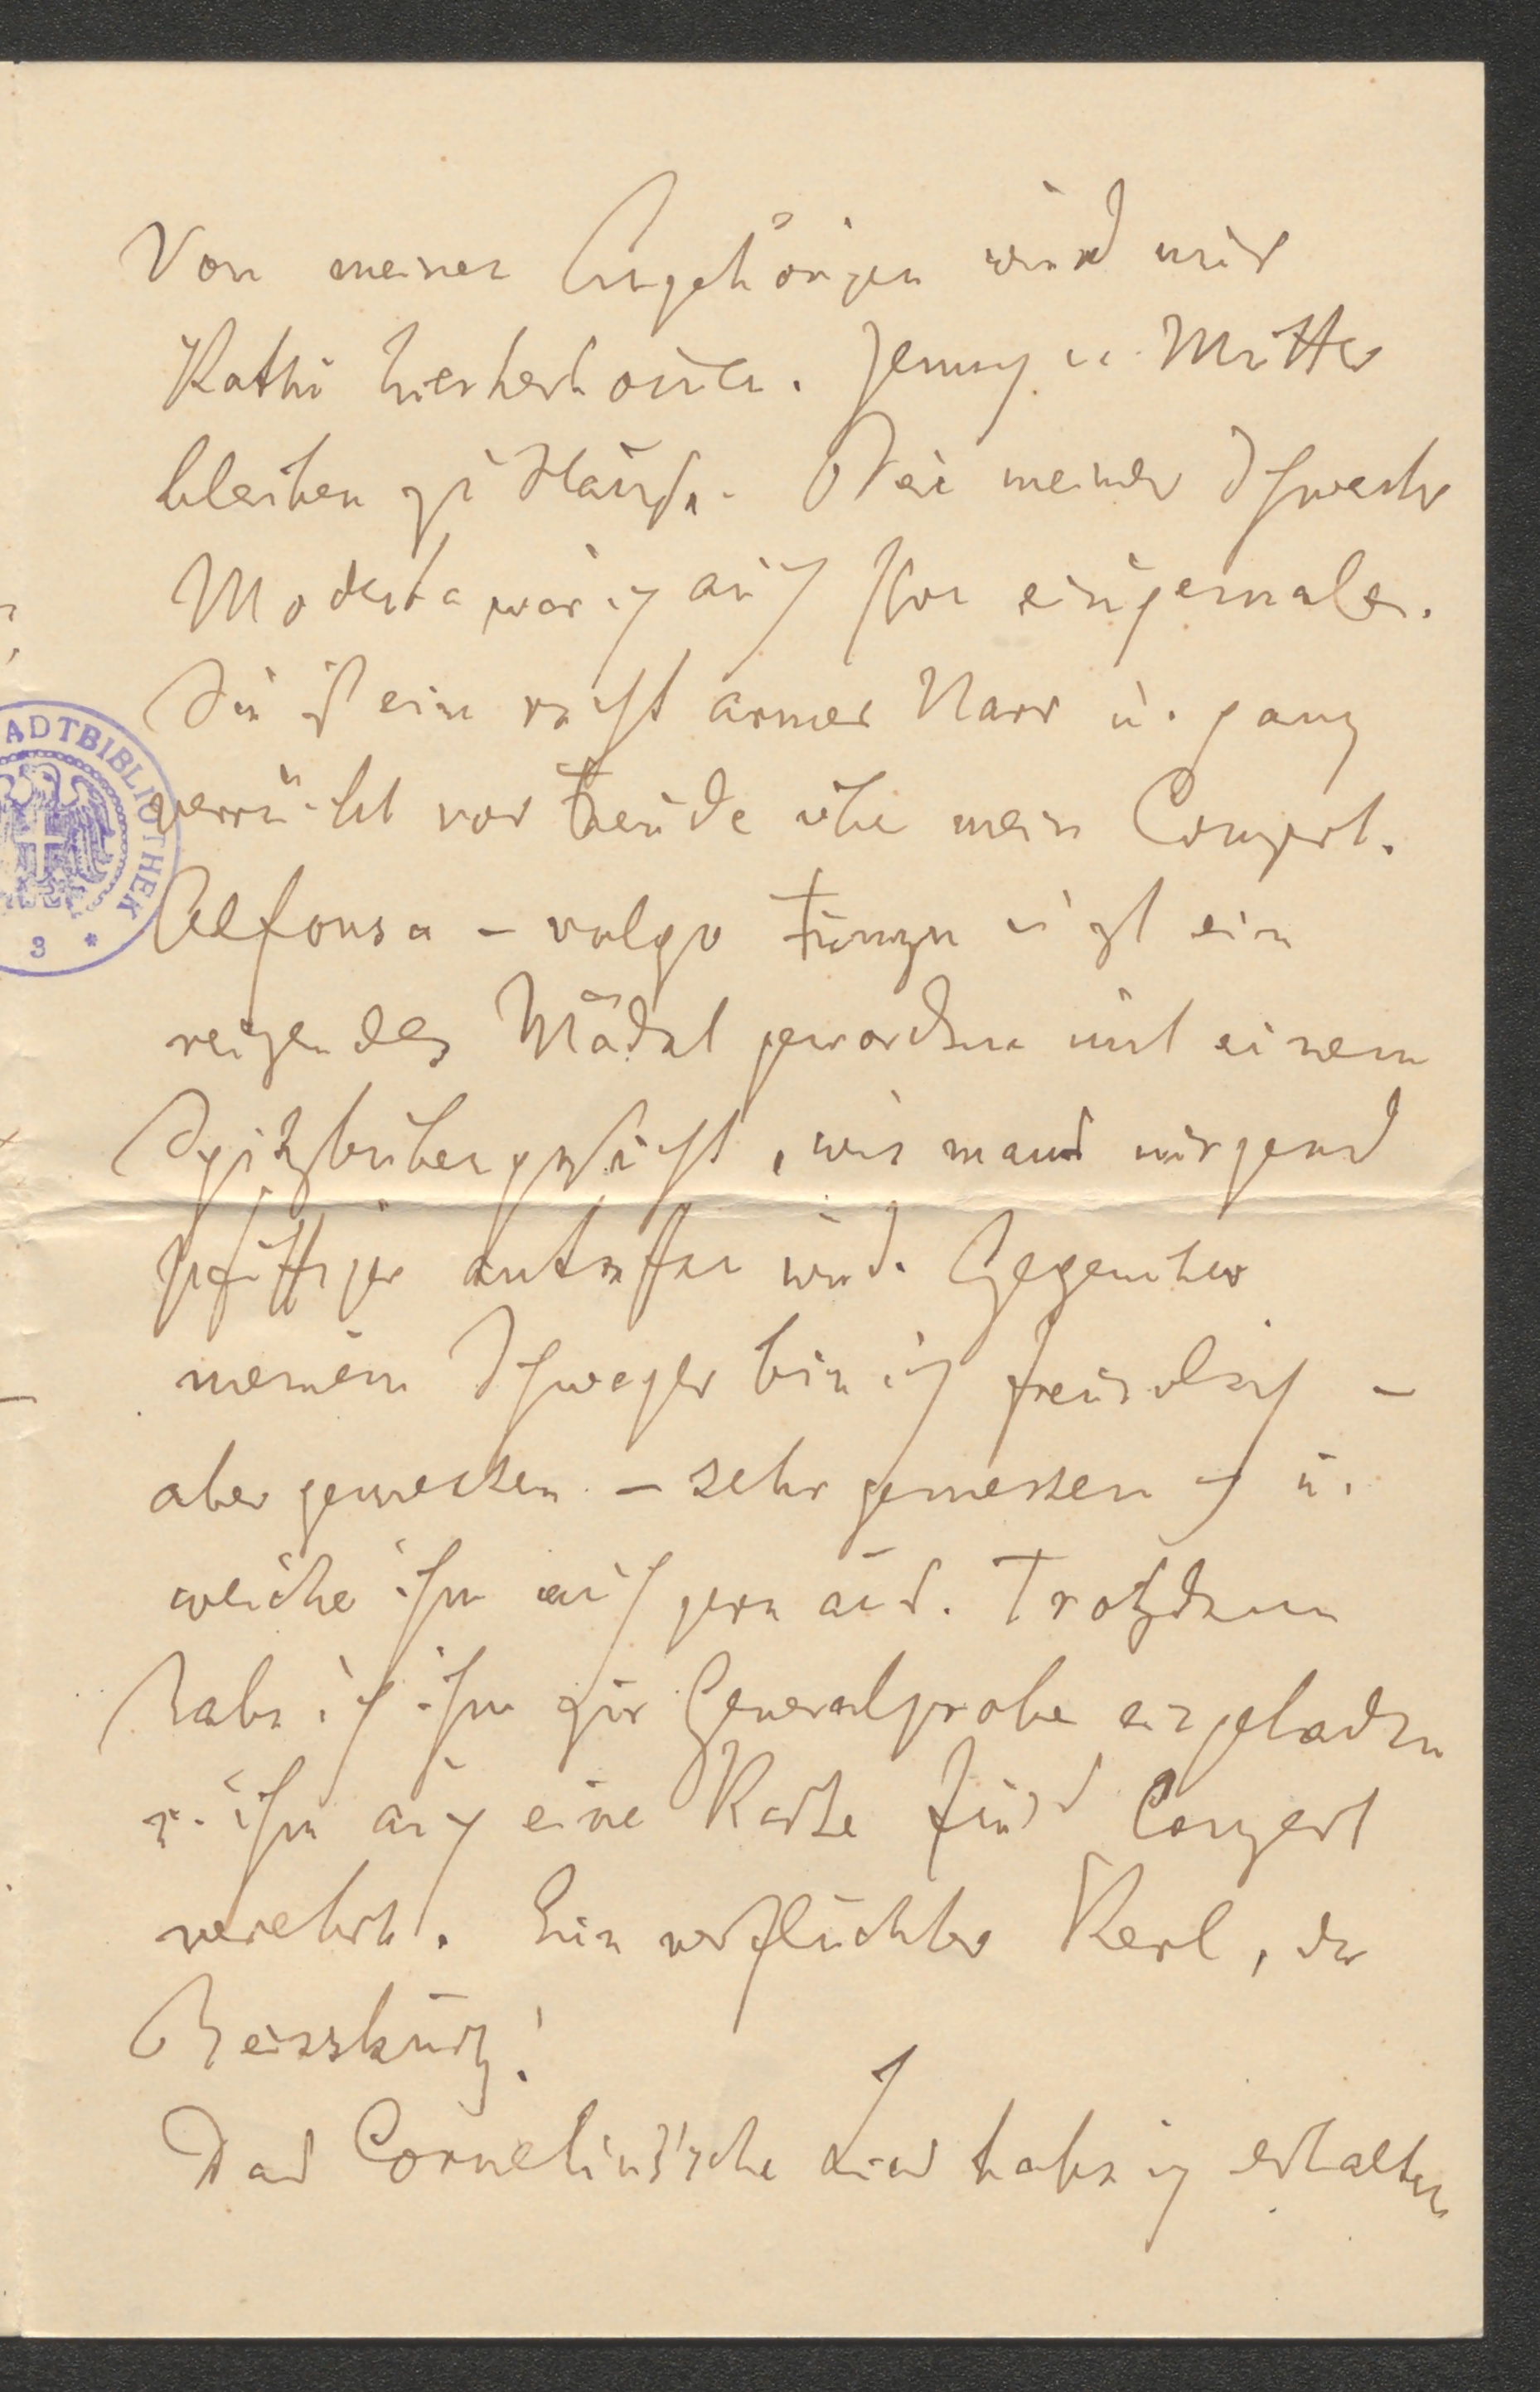 Von meinen Angehörigen wird nur
Kathi hierherkomen. Jenny u. Mutter
bleiben zu Hause. Bei meiner Schwester
Modesta war ich auch schon einigemale.
Sie ist ein recht armer Narr u. ganz
verrückt vor Freude über mein Conzert.
Alfonsa – vulgo ist ein
reizendes Mädel geworden mit einem
Spitzbubengesicht, wie mans nirgend
pfiffiger antreffen wird. Gegenüber
meinem Schwager bin ich freundlich –
aber gemessen – sehr gemessen – u.
weiche ihm auch gern aus. Trotzdem
habe ich ihn zur Generalprobe eingeladen
u. ihm auch eine Karte fürs Conzert
verehrt. Ein verfluchter Kerl, der
Das Cornelius'sche Lied habe ich erhalten
STADTBIBLIOTHEK
3 *